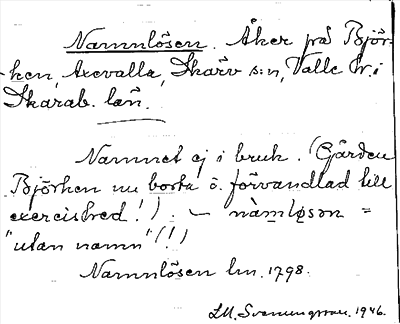 Namnlösen. Åker på Björ-
ken, Axevalla, Skärv s:n, Valle hr. i
Skarab. län.
Namnet ej i bruk. (Gården
Björken nu borta o. förvandlad till
exercished!). – nàmløsən =
"utan namn" (!)
Namnlösen lm. 1798.
LM. Svenungsson. 1946.